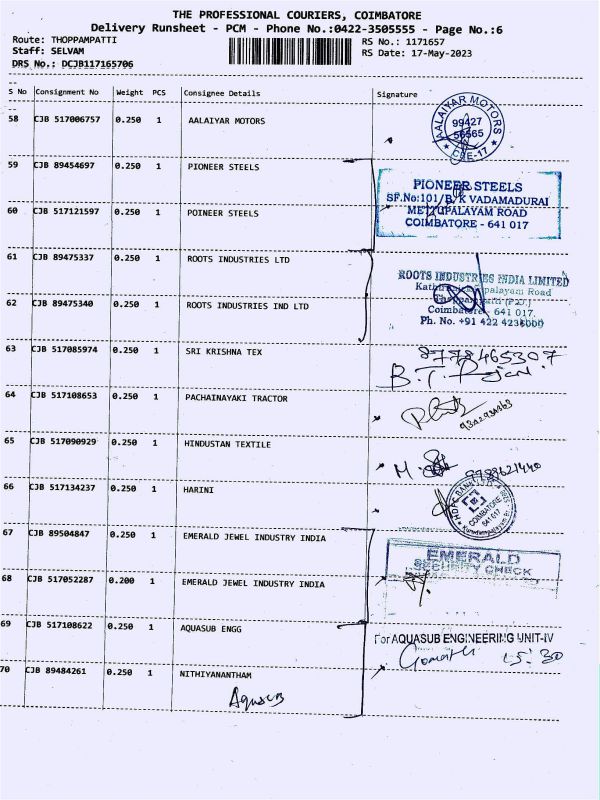 THE PROFESSIONAL COURIERS, COIMBATORE
Delivery Runsheet - PCM - Phone No.:0422-3505555 - Page No.:6
Route: THOPPAMPATTI RS No.: 1171657
Staff: SELVAM RS Date: 17-May-2023
DRS No.: DCJB117165706
S No Consignment No Weight PCS Consignee Details Signature
58 CJB 517006757 0.250 1 AALAIYAR MOTORS
AALAIYAR MOTORS
99427
56565
CBE-17
59 CJB 89454697 0.250 1 PIONEER STEELS
PIONEER STEELS
SF.No:101/B, K VADAMADURAI
METTUPALAYAM ROAD
COIMBATORE - 641 017
60 CJB 517121597 0.250 1 POINEER STEELS
61 CJB 89475337 0.250 1 ROOTS INDUSTRIES LTD
ROOTS INDUSTRIES INDIA LIMITED
palayam Road
Coimbatore - 641 017.
Ph. No. +91 422 4236000
62 CJB 89475340 0.250 1 ROOTS INDUSTRIES IND LTD
63 CJB 517085974 0.250 1 SRI KRISHNA TEX
8778465307
B.T.
64 CJB 517108653 0.250 1 PACHAINAYAKI TRACTOR
65 CJB 517090929 0.250 1 HINDUSTAN TEXTILE
M
9788621440
66 CJB 517134237 0.250 1 HARINI
HDFC BANK LTD
COIMBATORE
641 017
67 CJB 89504847 0.250 1 EMERALD JEWEL INDUSTRY INDIA
EMERALD
SECURITY CHECK
68 CJB 517052287 0.200 1 EMERALD JEWEL INDUSTRY INDIA
69 CJB 517108622 0.250 1 AQUASUB ENGG
For AQUASUB ENGINEERING UNIT-IV
Gomathi 15:30
70 CJB 89484261 0.250 1 NITHIYANANTHAM
Aquasub